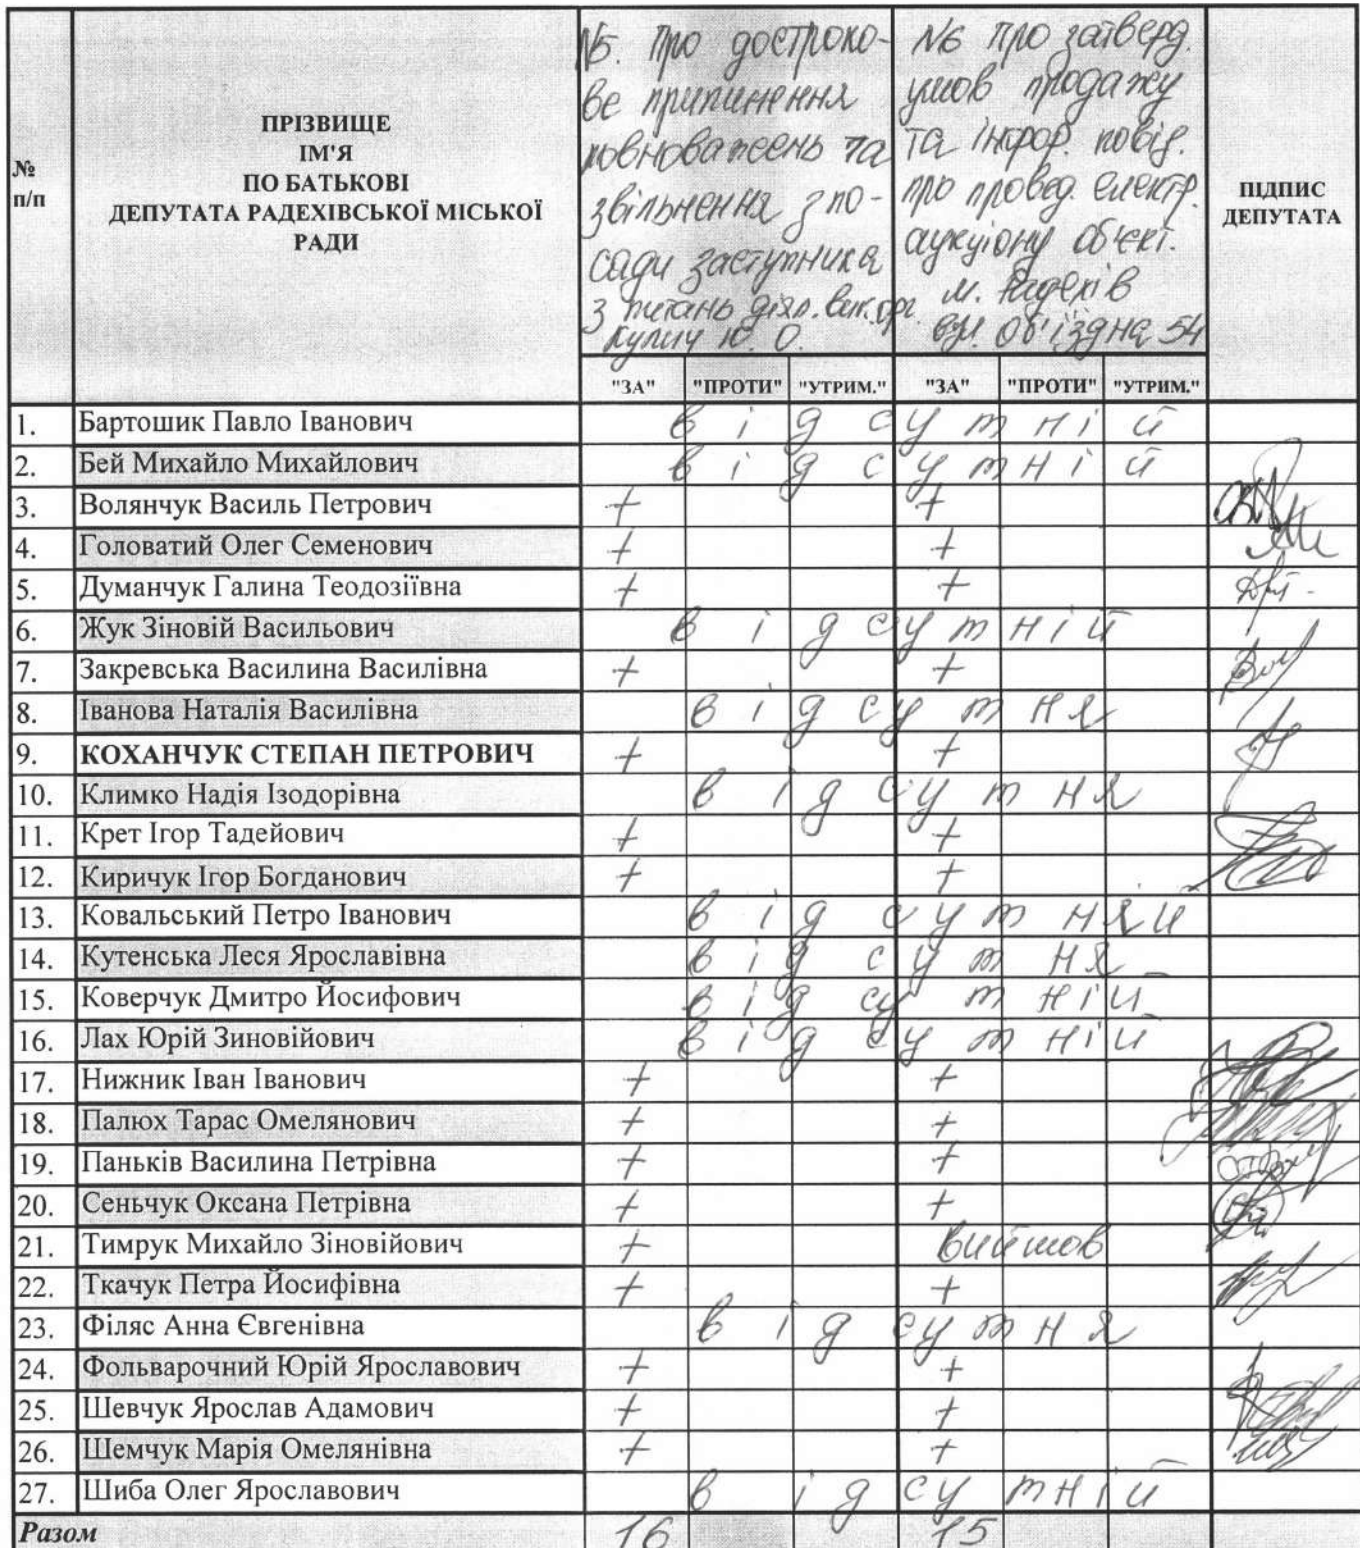 № п/п
ПРІЗВИЩЕ
ІМ'Я
ПО БАТЬКОВІ
ДЕПУТАТА РАДЕХІВСЬКОЇ МІСЬКОЇ
РАДИ
№5. Про достроко-
ве припинення
повноважень та
звільнення з по-
сади заступника
з питань діял. вик. орг.
Кулич Ю. О.
№6 Про затверд.
умов продажу
та інфор. повід.
про провед. електр.
аукціону об'єкт.
м. Радехів
вул. Об'їздна 54
ПІДПИС
ДЕПУТАТА
"ЗА" "ПРОТИ" "УТРИМ." "ЗА" "ПРОТИ" "УТРИМ."
1. Бартошик Павло Іванович відсутній
2. Бей Михайло Михайлович відсутній
3. Волянчук Василь Петрович + +
4. Головатий Олег Семенович + +
5. Думанчук Галина Теодозіївна + +
6. Жук Зіновій Васильович відсутній
7. Закревська Василина Василівна + +
8. Іванова Наталія Василівна відсутня
9. КОХАНЧУК СТЕПАН ПЕТРОВИЧ + +
10. Климко Надія Ізодорівна відсутня
11. Крет Ігор Тадейович + +
12. Киричук Ігор Богданович + +
13. Ковальський Петро Іванович відсутняй
14. Кутенська Леся Ярославівна відсутня
15. Коверчук Дмитро Йосифович відсутній
16. Лах Юрій Зиновійович відсутній
17. Нижник Іван Іванович + +
18. Палюх Тарас Омелянович + +
19. Паньків Василина Петрівна + +
20. Сеньчук Оксана Петрівна + +
21. Тимрук Михайло Зіновійович + вийшов
22. Ткачук Петра Йосифівна + +
23. Філяс Анна Євгенівна відсутня
24. Фольварочний Юрій Ярославович + +
25. Шевчук Ярослав Адамович + +
26. Шемчук Марія Омелянівна + +
27. Шиба Олег Ярославович відсутній
Разом 16 15